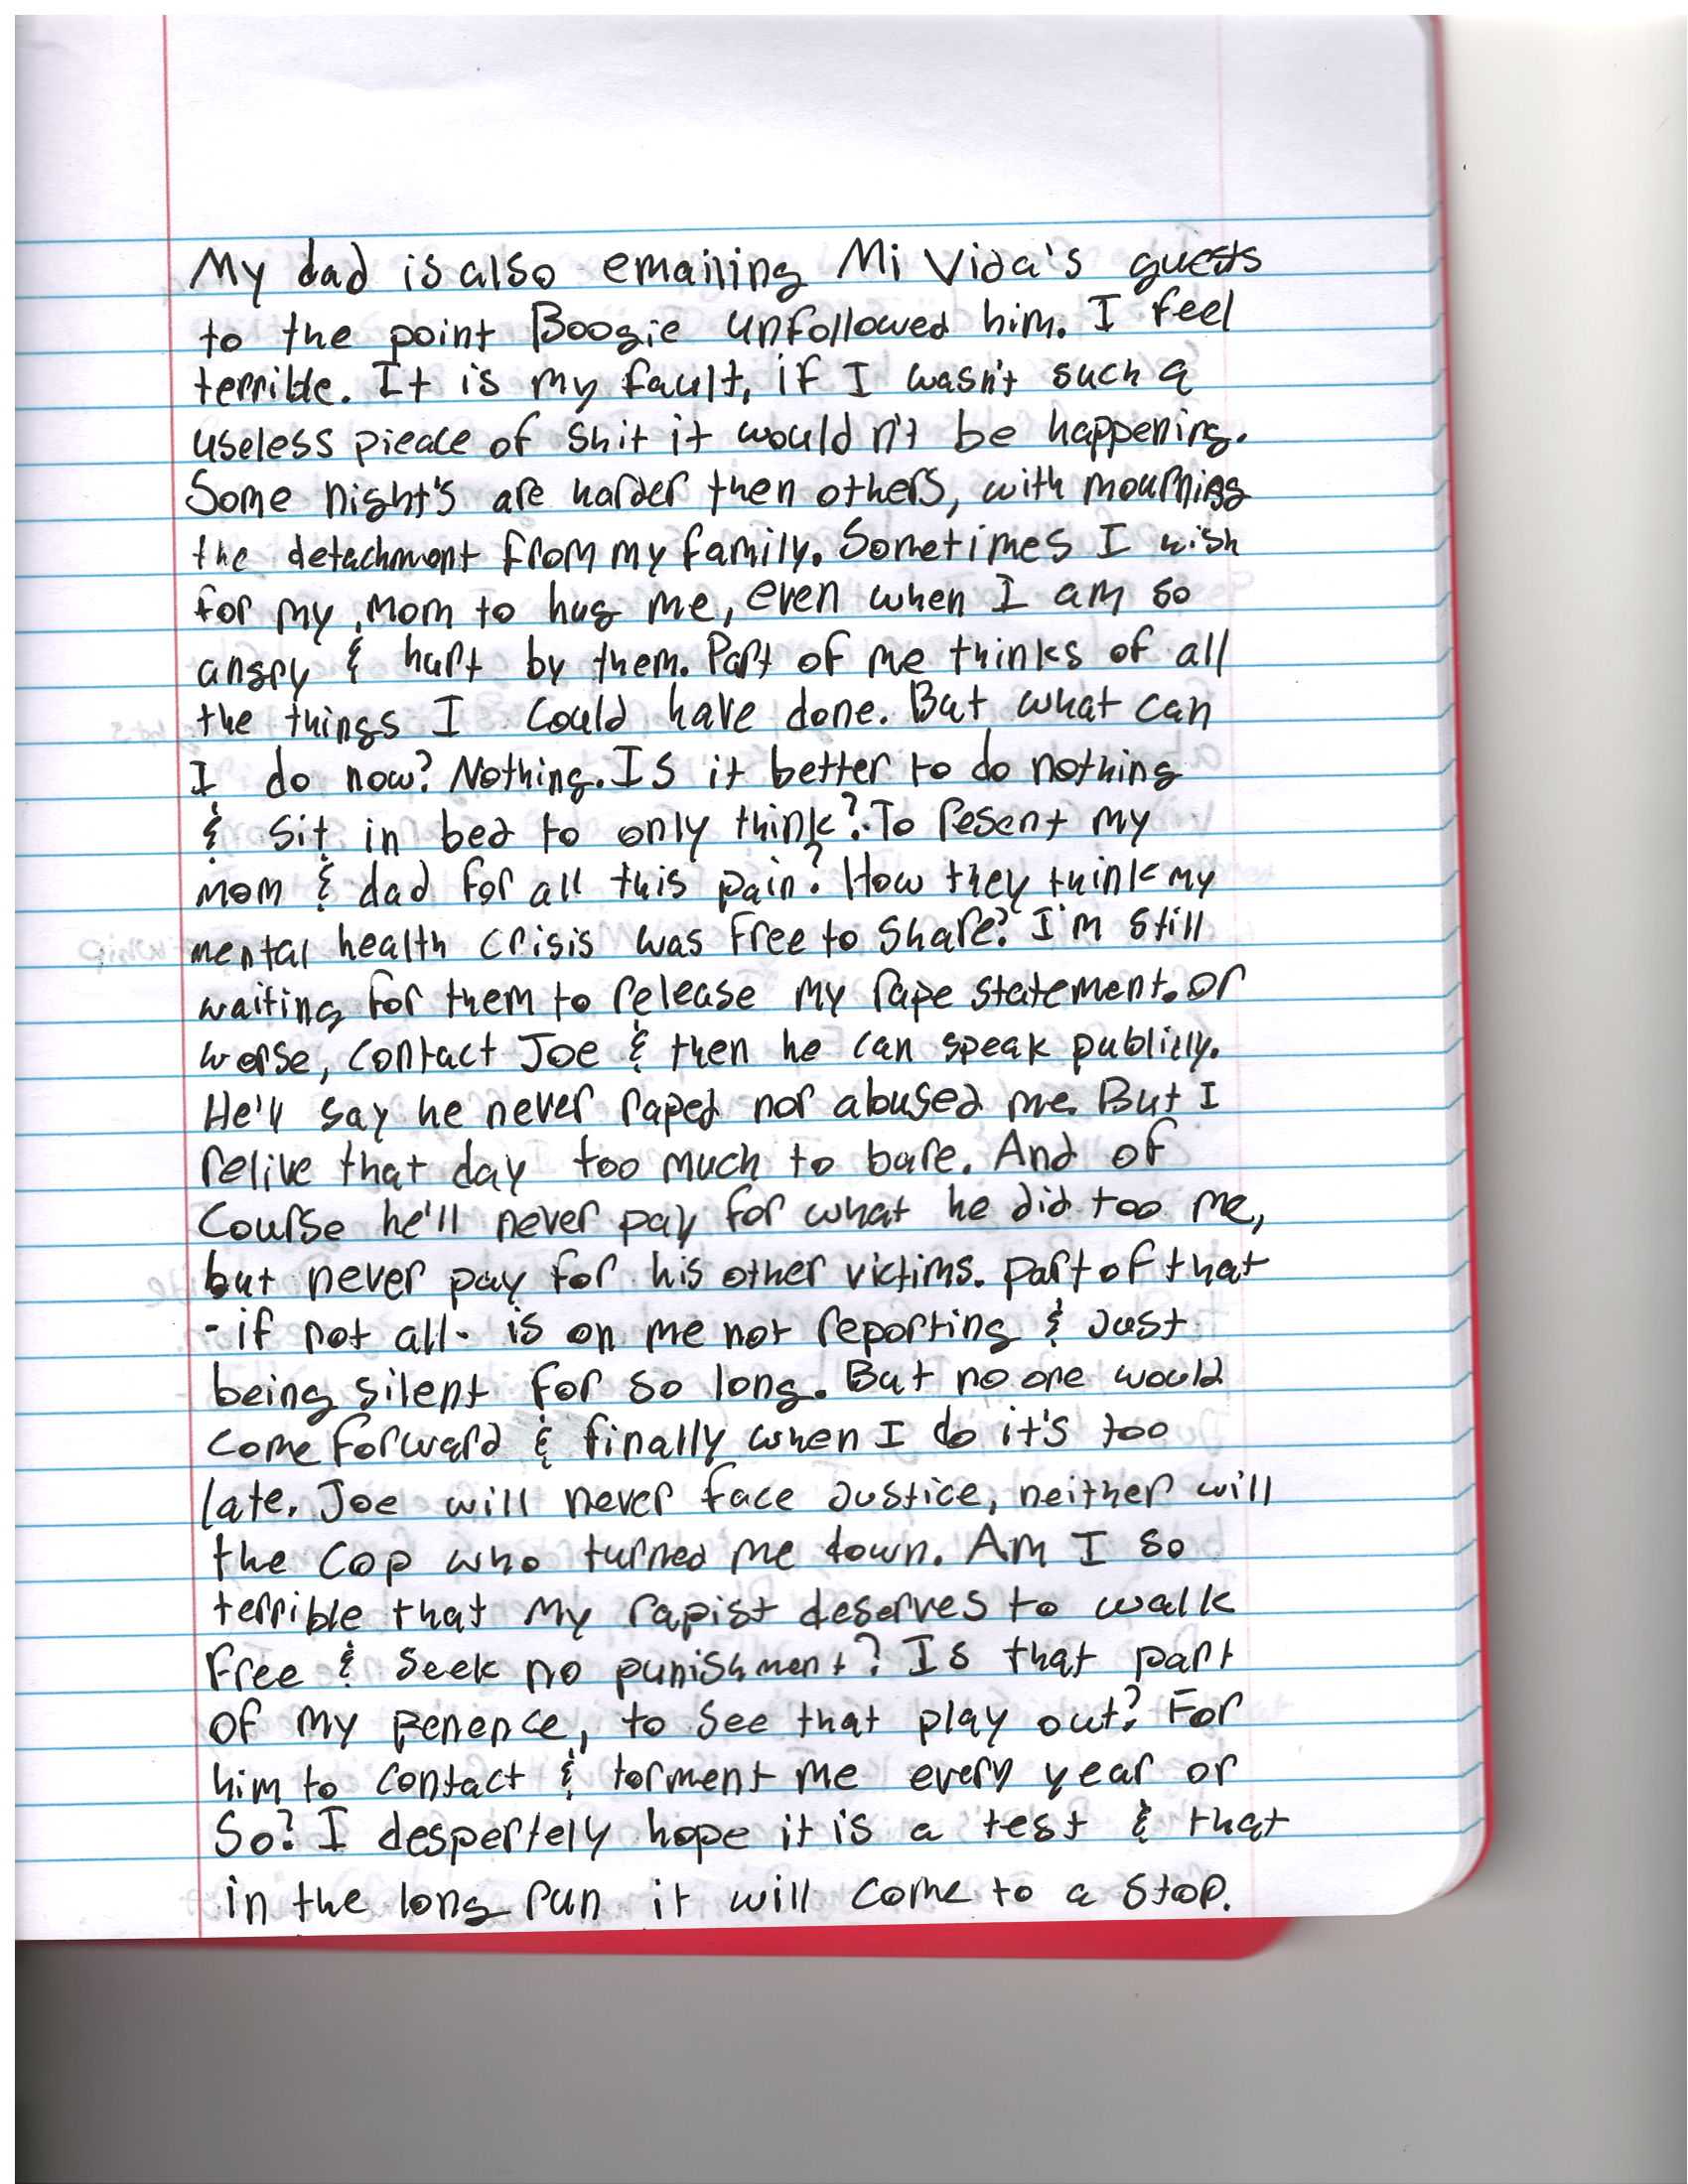 My dad is also emailing Mi Vida's guests
to the point Boogie unfollowed him. I feel
terrible. It is my fault, if I wasn't such a
useless pieace of shit it wouldn't be happening.
Some night's are harder then others, with mourning
the detachment from my family. Sometimes I wish
for my mom to hug me, even when I am so
angry & hurt by them. Part of me thinks of all
the things I could have done. But what can
I do now? Nothing. Is it better to do nothing
& sit in bed to only think? To resent my
mom & dad for all this pain? How they think my
mental health crisis was free to share? I'm still
waiting for them to release my rape statement. or
worse, contact Joe & then he can speak publicly.
He'll say he never raped nor abused me. But I
relive that day too much to bare. And of
course he'll never pay for what he did too me,
but never pay for his other victims. part of that
- if not all - is on me not reporting & just
being silent for so long. But no one would
come forward & finally when I do it's too
late. Joe will never face justice, neither will
the cop who turned me down. Am I so
terrible that my rapist deserves to walk
free & seek no punishment? Is that part
of my penence, to see that play out? For
him to contact & torment me every year or
so? I despertely hope it is a test & that
in the long run it will come to a stop.